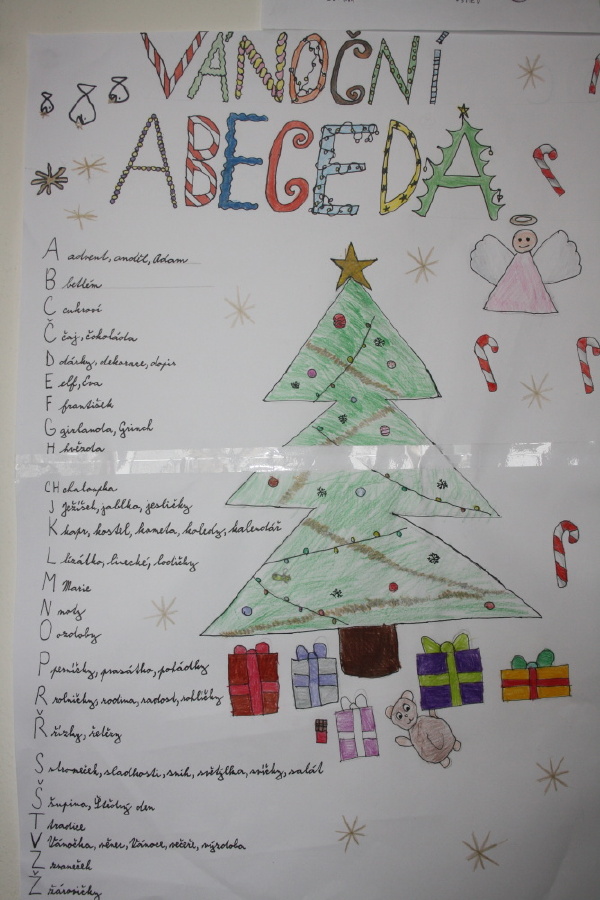 VÁNOČNÍ
ABECEDA
A advent, anděl, Adam
B betlém
C cukroví
Č čaj, čokoláda
D dárky, dekorace, dopis
E elf, Eva
F františek
G girlanda, Grinch
H hvězda
CH chaloupka
J Ježíšek, jablka, jesličky
K kapr, kostel, kometa, koledy, kalendář
L lízátko, linecké, lodičky
M Marie
N noty
O ozdoby
P perníčky, prasátko, pohádky
R rolničky, rodina, radost, rohlíčky
Ř řízky, řetězy
S stromeček, sladkosti, sníh, světýlka, svíčky, salát
Š šupina, Štědrý den
T tradice
V Vánočka, věnec, Vánoce, večeře, výzdoba
Z zvoneček
Ž žárovičky